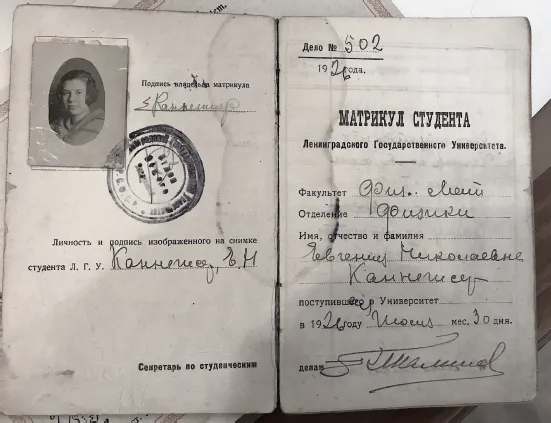 Подпись владельца матрикула
Е Каннегисер
Личность и подпись изображенного на снимке
студента Л. Г. У. Каннегисер, Е. Н
Секретарь по студенческим
Дело № 502
1926 года.
МАТРИКУЛ СТУДЕНТА
Ленинградского Государственного Университета.
Факультет Физ. Мат
Отделение Физики
Имя, отчество и фамилия
Евгении Николаевне
Каннегисер
поступившей в Университет
в 1926 году Июль мес. 30 дня.
делам